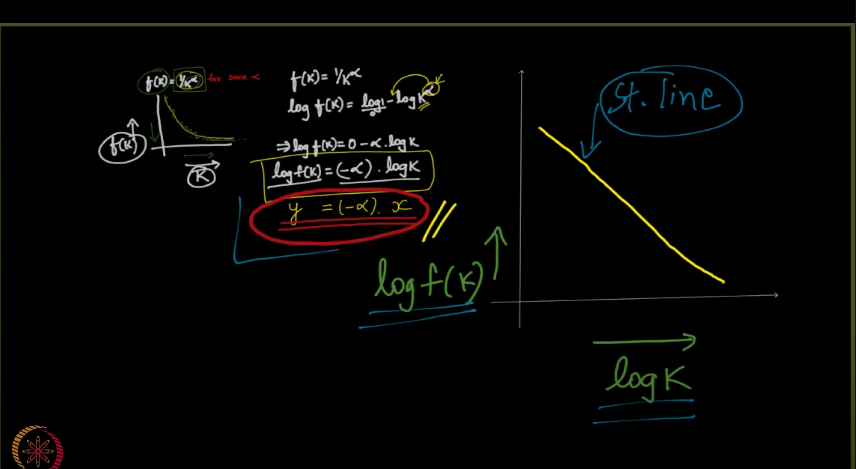 f(K) = 1/K^α for some α
f(K)
K
f(K) = 1/K^α
log f(K) = log1 - logK^α
0
⇒ log f(K) = 0 - α . log K
log f(K) = (-α) . log K
y = (-α) . x
St. line
log f(K)
log K